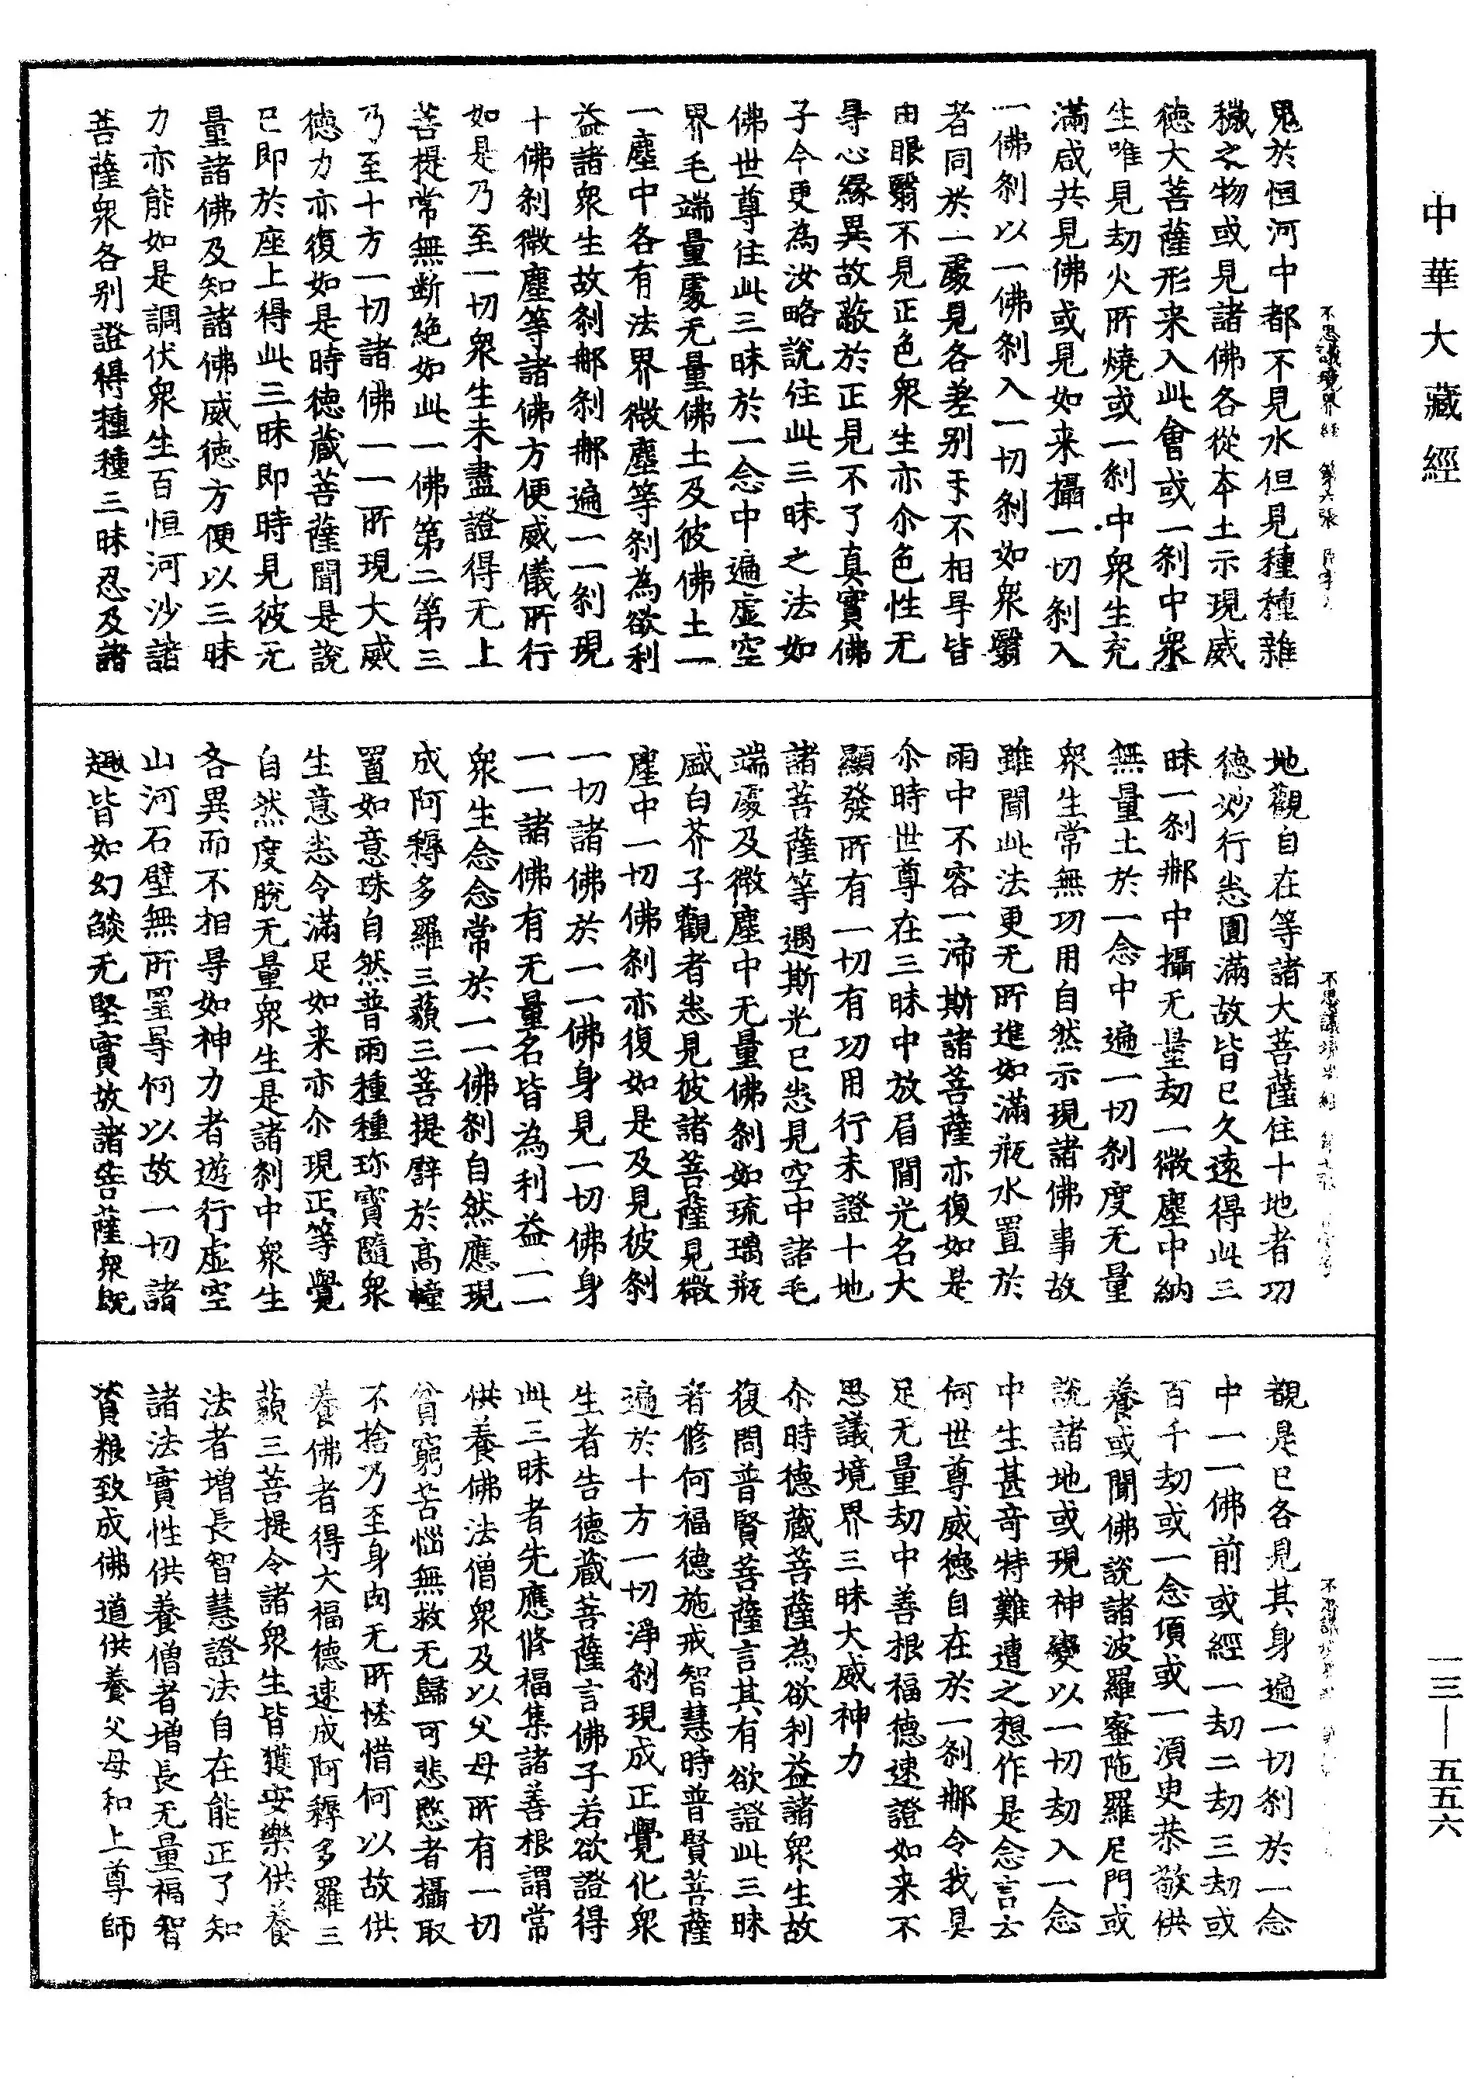 中華大藏經
不思議境界經 第六張
鬼於恒河中都不見水但見種種雜
穢之物或見諸佛各從本土示現威
德大菩薩形来入此會或一剎中衆
生唯見劫火所燒或一剎中衆生充
滿咸共見佛或見如来攝一切剎入
一佛剎以一佛剎入一切剎如衆翳
者同於一處見各差别互不相㝵皆
由眼翳不見正色衆生亦尒色性无
㝵心緣異故蔽於正見不了真實佛
子今更為汝略說住此三昧之法如
佛世尊住此三昧於一念中遍虛空
界毛端量處无量佛土及彼佛土一
一塵中各有法界微塵等剎為欲利
益諸衆生故剎那剎那遍一一剎現
十佛剎微塵等諸佛方便威儀所行
如是乃至一切衆生未盡證得无上
菩提常無断絶如此一佛第二第三
乃至十方一切諸佛一一所現大威
德力亦復如是時德藏菩薩聞是說
已即於座上得此三昧即時見彼无
量諸佛及知諸佛威德方便以三昧
力亦能如是調伏衆生百恒河沙諸
菩薩衆各别證得種種三昧忍及諸
不思議境界經
地觀自在等諸大菩薩住十地者功
德妙行悉圓滿故皆已久遠得此三
昧一剎那中攝无量劫一微塵中納
無量土於一念中遍一切剎度无量
衆生常無功用自然示現諸佛事故
雖聞此法更无所進如滿瓶水置於
雨中不容一渧斯諸菩薩亦復如是
尒時世尊在三昧中放眉間光名大
顯發所有一切有功用行未證十地
諸菩薩等遇斯光已悉見空中諸毛
端處及微塵中无量佛剎如琉璃瓶
盛白芥子觀者悉見彼諸菩薩見微
塵中一切佛剎亦復如是及見彼剎
一切諸佛於一一佛身見一切佛身
一一諸佛有无量名皆為利益一一
衆生念念常於一一佛剎自然應現
成阿耨多羅三藐三菩提譬於高幢
置如意珠自然普雨種種珎寶隨衆
生意悉令滿足如来亦尒現正等覺
自然度脫无量衆生是諸剎中衆生
各異而不相㝵如神力者遊行虛空
山河石壁無所罣㝵何以故一切諸
趣皆如幻燄无堅實故諸菩薩衆既
不思議境界
觀是已各見其身遍一切剎於一念
中一一佛前或經一劫二劫三劫或
百千劫或一念頃或一湏臾恭敬供
養或聞佛說諸波羅蜜陁羅尼門或
說諸地或現神變以一切劫入一念
中生甚奇特難遭之想作是念言云
何世尊威德自在於一剎那令我具
足无量劫中善根福德速證如来不
思議境界三昧大威神力
尒時德藏菩薩為欲利益諸衆生故
復問普賢菩薩言其有欲證此三昧
者修何福德施戒智慧時普賢菩薩
遍於十方一切淨剎現成正覺化衆
生者告德藏菩薩言佛子若欲證得
此三昧者先應修福集諸善根謂常
供養佛法僧衆及以父母所有一切
貧窮苦惱無救无歸可悲愍者攝取
不捨乃至身肉无所恡惜何以故供
養佛者得大福德速成阿耨多羅三
藐三菩提令諸衆生皆獲安樂供養
法者增長智慧證法自在能正了知
諸法實性供養僧者增長无量福智
資粮致成佛道供養父母和上尊師
一三—五五六